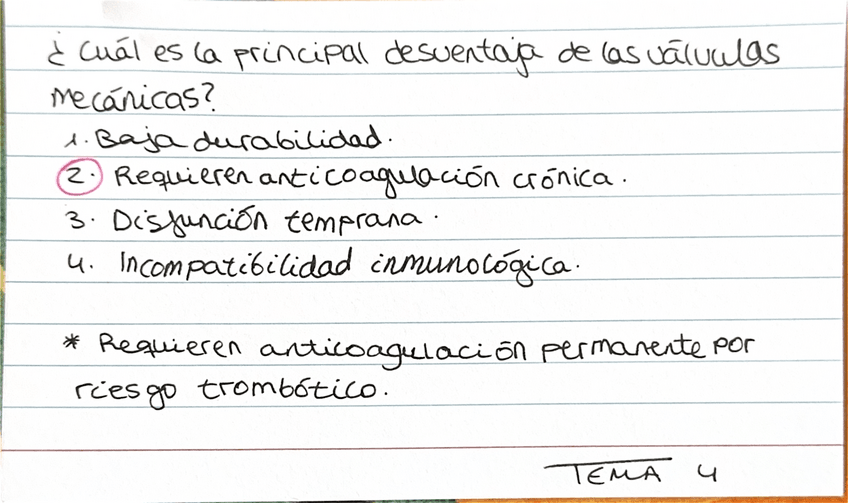 ¿Cuál es la principal desventaja de las válvulas
mecánicas?
1. Baja durabilidad.
2. Requieren anticoagulación crónica.
3. Disfunción temprana.
4. Incompatibilidad inmunológica.
* Requieren anticoagulación permanente por
riesgo trombótico.
TEMA 4